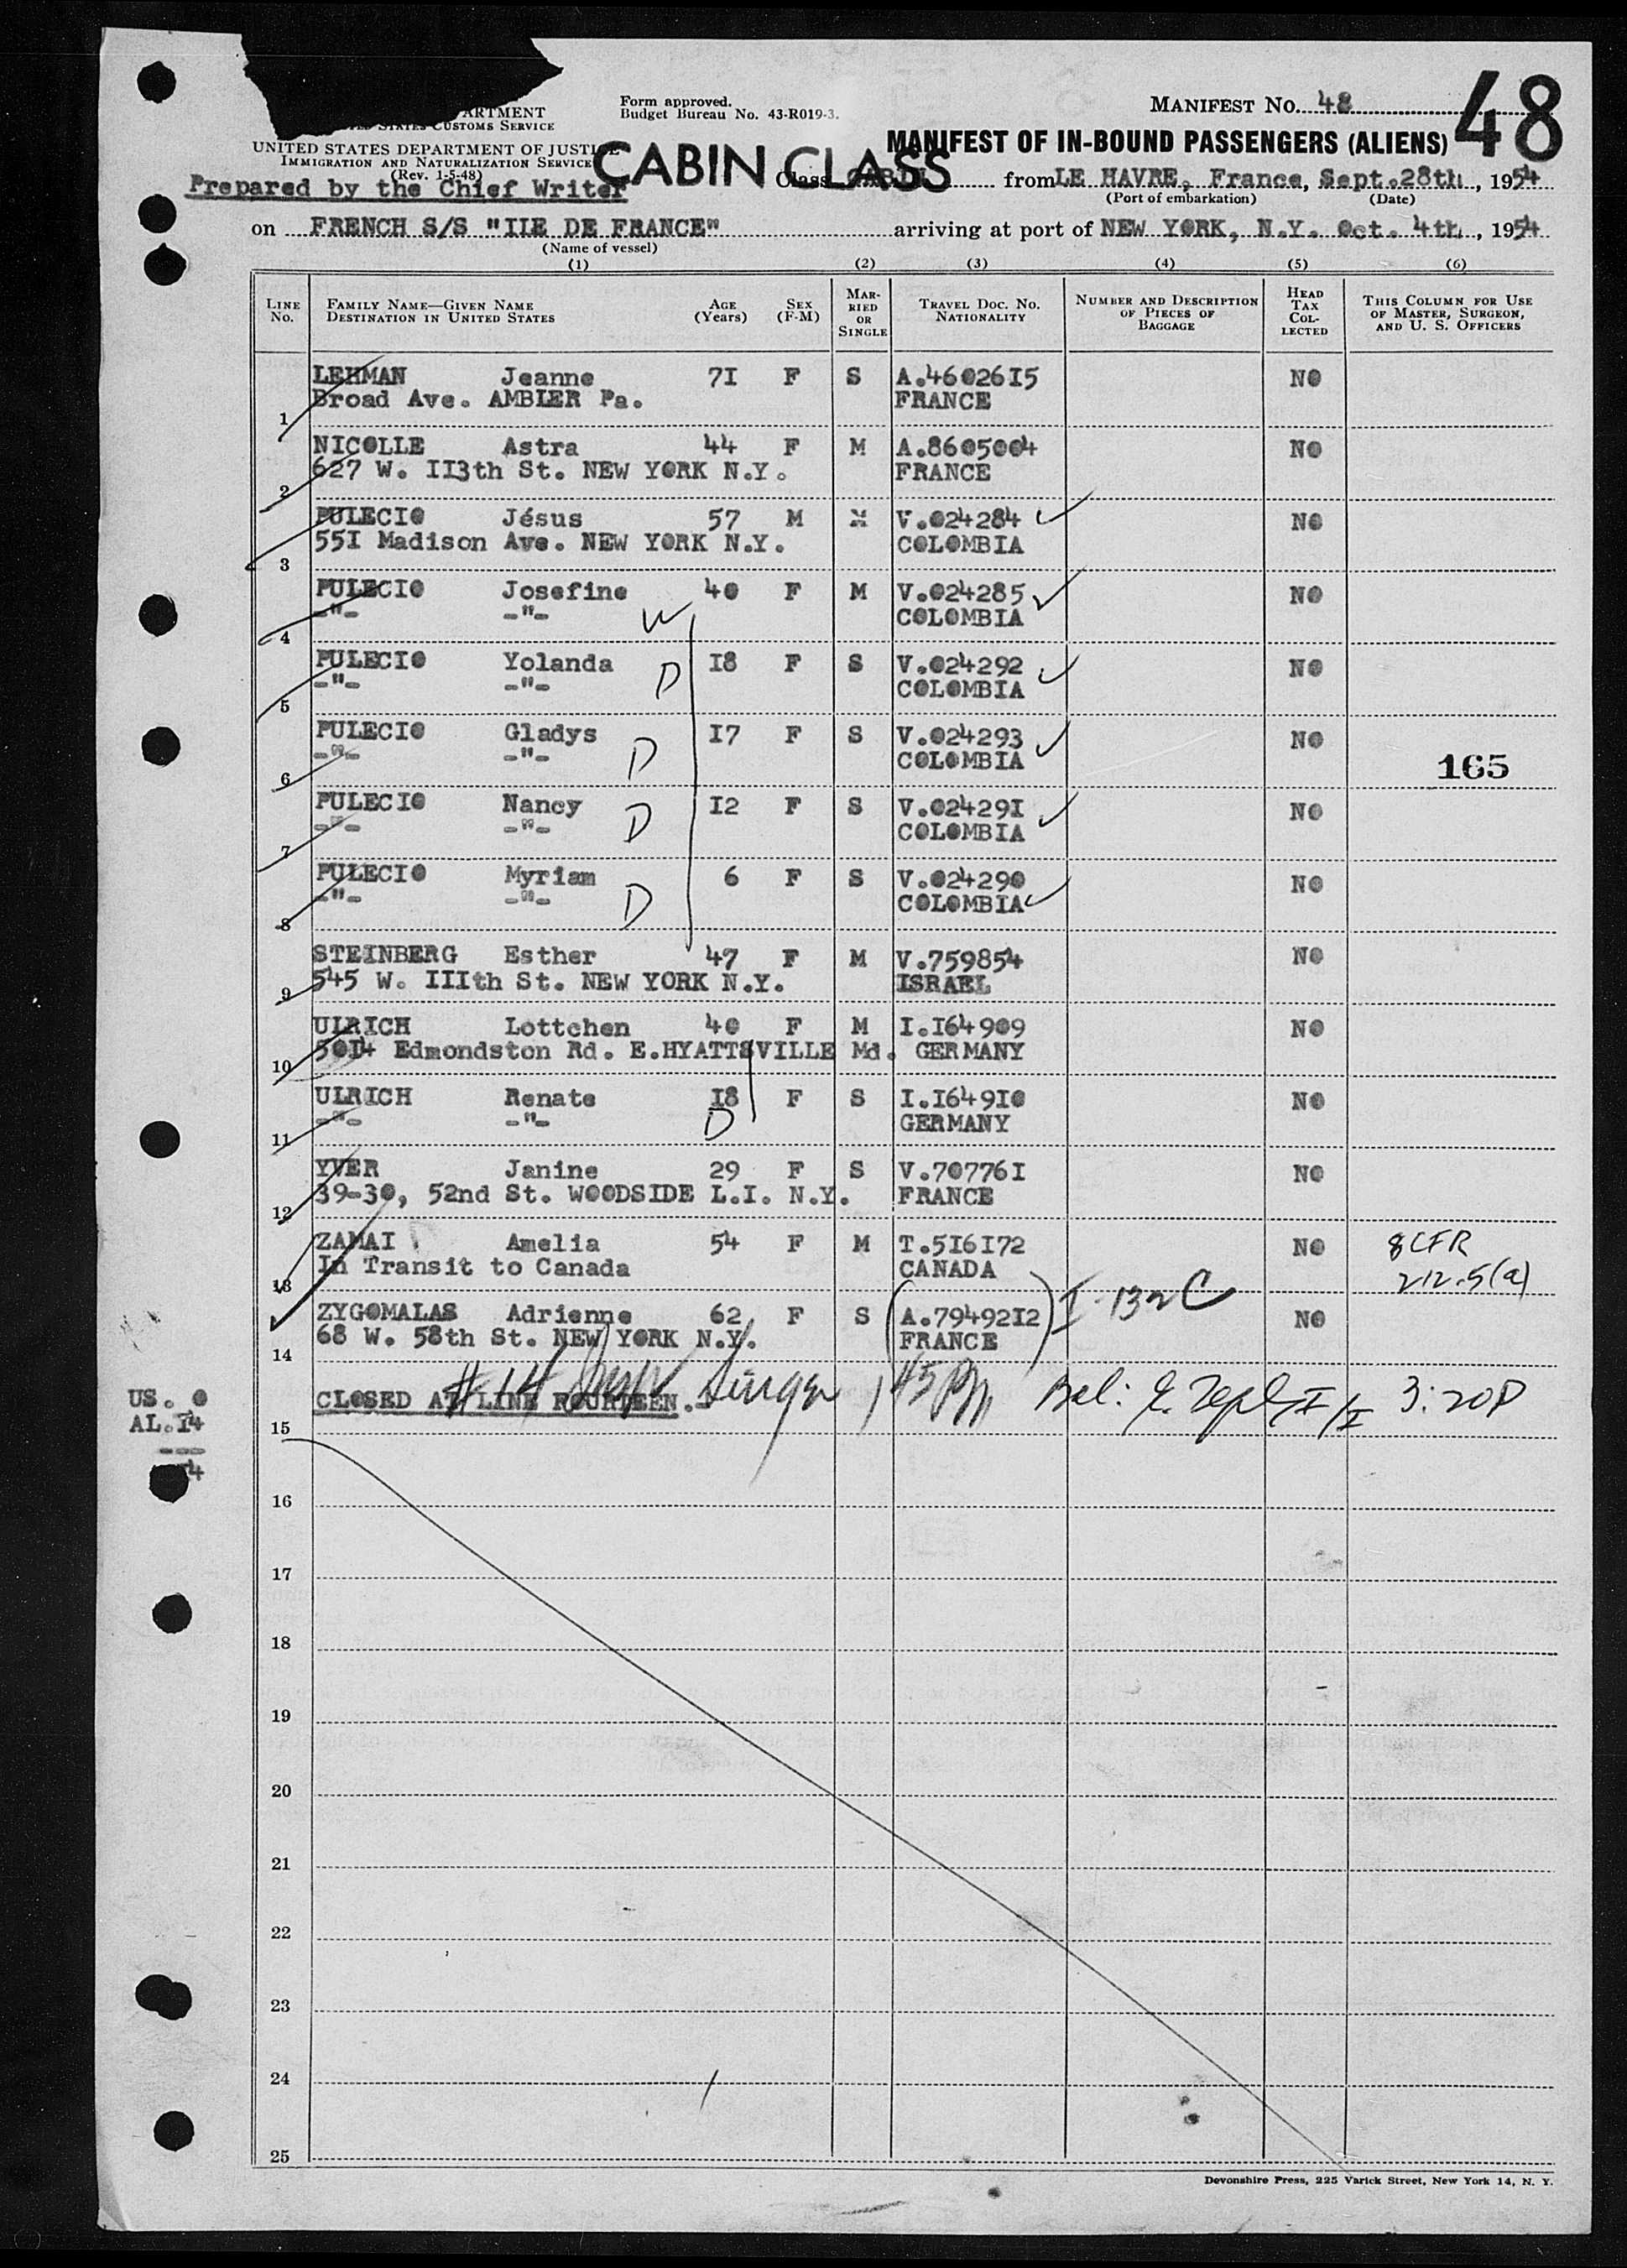 ARTMENT
STATES CUSTOMS SERVICE
UNITED STATES DEPARTMENT OF JUSTICE
IMMIGRATION AND NATURALIZATION SERVICE
(Rev. 1-5-48)
Prepared by the Chief Writer
Form approved.
Budget Bureau No. 43-R019-3.
MANIFEST NO. 48
48
MANIFEST OF IN-BOUND PASSENGERS (ALIENS)
CABIN CLASS
Class CABIN from LE HAVRE, France, Sept.28th, 1954
(Port of embarkation) (Date)
on FRENCH S/S "ILE DE FRANCE" arriving at port of NEW YORK, N.Y. Oct. 4th, 1954
(Name of vessel)
(1) (2) (3) (4) (5) (6)
LINE No. FAMILY NAME—GIVEN NAME DESTINATION IN UNITED STATES AGE (Years) SEX (F-M) MARRIED OR SINGLE TRAVEL DOC. NO. NATIONALITY NUMBER AND DESCRIPTION OF PIECES OF BAGGAGE HEAD TAX COLLECTED THIS COLUMN FOR USE OF MASTER, SURGEON, AND U. S. OFFICERS
LEHMAN Jeanne 71 F S A.4602615 NO
1 Broad Ave. AMBLER Pa. FRANCE
NICOLLE Astra 44 F M A.8605004 NO
2 627 W. 113th St. NEW YORK N.Y. FRANCE
PULECIO Jésus 57 M M V.024284 NO
3 551 Madison Ave. NEW YORK N.Y. COLOMBIA
PULECIO Josefine 40 F M V.024285 NO
4 -"- -"- W COLOMBIA
PULECIO Yolanda 18 F S V.024292 NO
5 -"- -"- D COLOMBIA
PULECIO Gladys 17 F S V.024293 NO
6 -"- -"- D COLOMBIA 165
PULECIO Nancy 12 F S V.024291 NO
7 -"- -"- D COLOMBIA
PULECIO Myriam 6 F S V.024290 NO
8 -"- -"- D COLOMBIA
STEINBERG Esther 47 F M V.759854 NO
9 545 W. 111th St. NEW YORK N.Y. ISRAEL
ULRICH Lottchen 40 F M I.164909 NO
10 5014 Edmondston Rd. E.HYATTSVILLE Md. GERMANY
ULRICH Renate 18 F S I.164910 NO
11 -"- -"- D GERMANY
YVER Janine 29 F S V.707761 NO
12 39-30, 52nd St. WOODSIDE L.I. N.Y. FRANCE
ZAMAI Amelia 54 F M T.516172 NO 8 CFR
13 In Transit to Canada CANADA 212.5(a)
ZYGOMALAS Adrienne 62 F S (A.7949212) I-132C NO
14 68 W. 58th St. NEW YORK N.Y. FRANCE
CLOSED AT LINE FOURTEEN.-
#14 Singer 145 Pm Bal: 3:20P
US. 0
AL.14
---
14
15
16
17
18
19
20
21
22
23
24
25
Devonshire Press, 225 Varick Street, New York 14, N. Y.